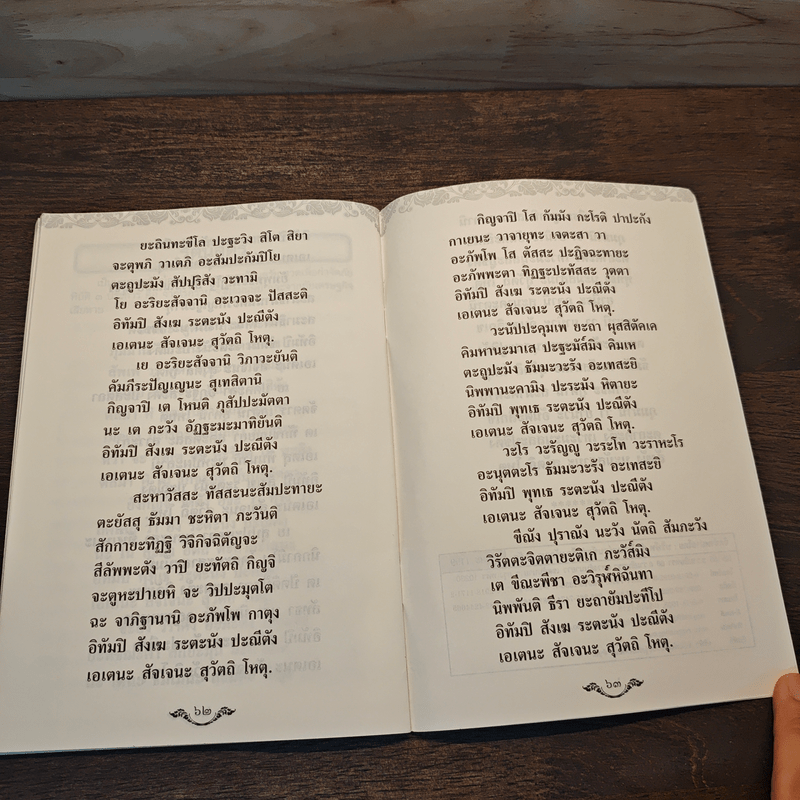 ยะถินทะขีโล ปะฐะวิง สิโต สิยา
จะตุพภิ วาเตภิ อะสัมปะกัมปิโย
ตะถูปะมัง สัปปุริสัง วะทามิ
โย อะริยะสัจจานิ อะเวจจะ ปัสสะติ
อิทัมปิ สังเฆ ระตะนัง ปะณีตัง
เอเตนะ สัจเจนะ สุวัตถิ โหตุ.
เย อะริยะสัจจานิ วิภาวะยันติ
คัมภีระปัญเญนะ สุเทสิตานิ
กิญจาปิ เต โหนติ ภุสัปปะมัตตา
นะ เต ภะวัง อัฏฐะมะมาทิยันติ
อิทัมปิ สังเฆ ระตะนัง ปะณีตัง
เอเตนะ สัจเจนะ สุวัตถิ โหตุ.
สะหาวัสสะ ทัสสะนะสัมปะทายะ
ตะยัสสุ ธัมมา ชะหิตา ภะวันติ
สักกายะทิฏฐิ วิจิกิจฉิตัญจะ
สีลัพพะตัง วาปิ ยะทัตถิ กิญจิ
จะตูหะปาเยหิ จะ วิปปะมุตโต
ฉะ จาภิฐานานิ อะภัพโพ กาตุง
อิทัมปิ สังเฆ ระตะนัง ปะณีตัง
เอเตนะ สัจเจนะ สุวัตถิ โหตุ.
๖๒
กิญจาปิ โส กัมมัง กะโรติ ปาปะกัง
กาเยนะ วาจายุทะ เจตะสา วา
อะภัพโพ โส ตัสสะ ปะฏิจฉะทายะ
อะภัพพะตา ทิฏฐะปะทัสสะ วุตตา
อิทัมปิ สังเฆ ระตะนัง ปะณีตัง
เอเตนะ สัจเจนะ สุวัตถิ โหตุ.
วะนัปปะคุมเพ ยะถา ผุสสิตัคเค
คิมหานะมาเส ปะฐะมัส๎มิง คิมเห
ตะถูปะมัง ธัมมะวะรัง อะเทสะยิ
นิพพานะคามิง ปะระมัง หิตายะ
อิทัมปิ พุทเธ ระตะนัง ปะณีตัง
เอเตนะ สัจเจนะ สุวัตถิ โหตุ.
วะโร วะรัญญู วะระโท วะราหะโร
อะนุตตะโร ธัมมะวะรัง อะเทสะยิ
อิทัมปิ พุทเธ ระตะนัง ปะณีตัง
เอเตนะ สัจเจนะ สุวัตถิ โหตุ.
ขีณัง ปุราณัง นะวัง นัตถิ สัมภะวัง
วิรัตตะจิตตายะติเก ภะวัส๎มิง
เต ขีณะพีชา อะวิรุฬ๎หิฉันทา
นิพพันติ ธีรา ยะถายัมปะทีโป
อิทัมปิ สังเฆ ระตะนัง ปะณีตัง
เอเตนะ สัจเจนะ สุวัตถิ โหตุ.
๖๓